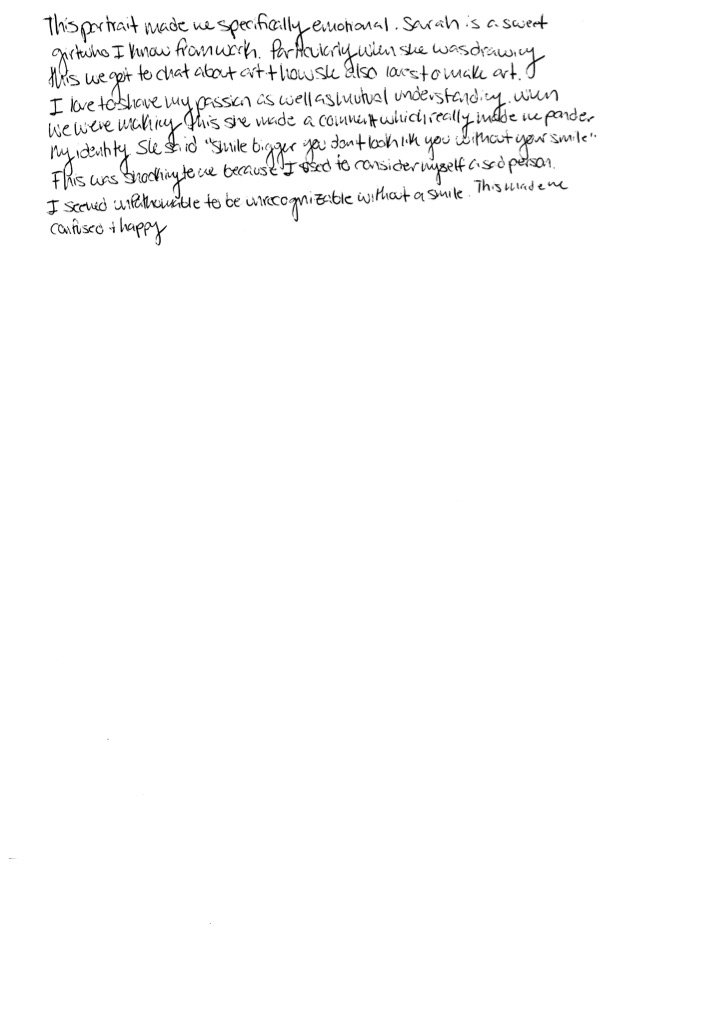 This portrait made me specifically emotional. Sarah is a sweet
girl who I know from work. Particularly when she was drawing
this we got to chat about art + how she also loves to make art.
I love to share my passion as well as mutual understanding. when
we were making this she made a comment which really made me ponder
my identity She said "smile bigger you don't look like you without your smile".
This was shocking to me because I used to consider myself a sad person.
I seemed unfathomable to be unrecognizable without a smile. This made me
confused + happy